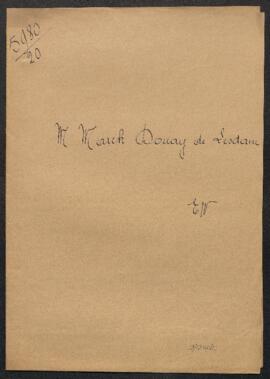 5980
20
M Marck Douay de Lesdain
EV